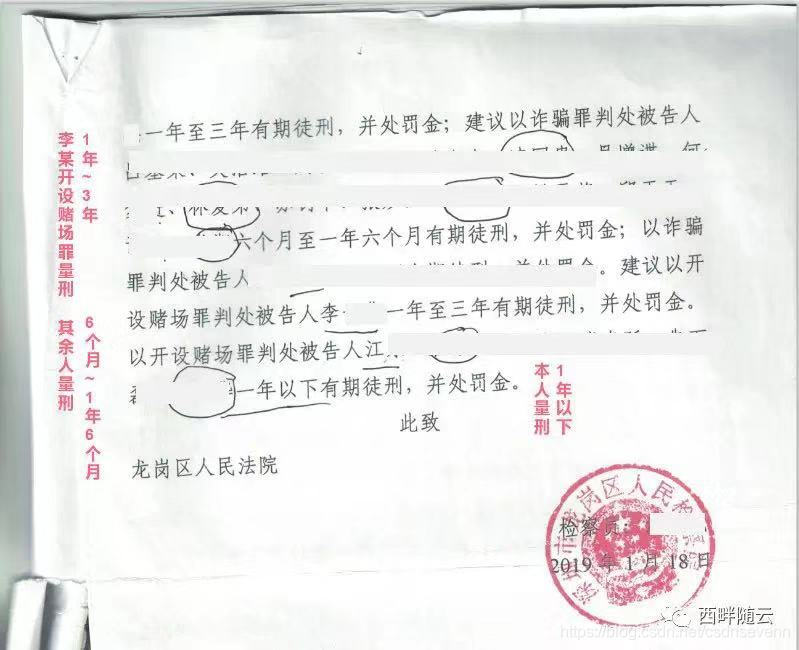 一年至三年有期徒刑，并处罚金；建议以诈骗罪判处被告人
六个月至一年六个月有期徒刑，并处罚金；以诈骗
罪判处被告人
有期徒刑，并处罚金。建议以开
设赌场罪判处被告人李
一年至三年有期徒刑，并处罚金。
以开设赌场罪判处被告人江
一年以下有期徒刑，并处罚金。
此致
龙岗区人民法院
检察员：
2019年1月18日
龙岗区人民检
1年~3年
李某开设赌场罪量刑
6个月~1年6个月
其余人量刑
1年以下
本人量刑
西畔随云
https://blog.csdn.net/csdnsevenn